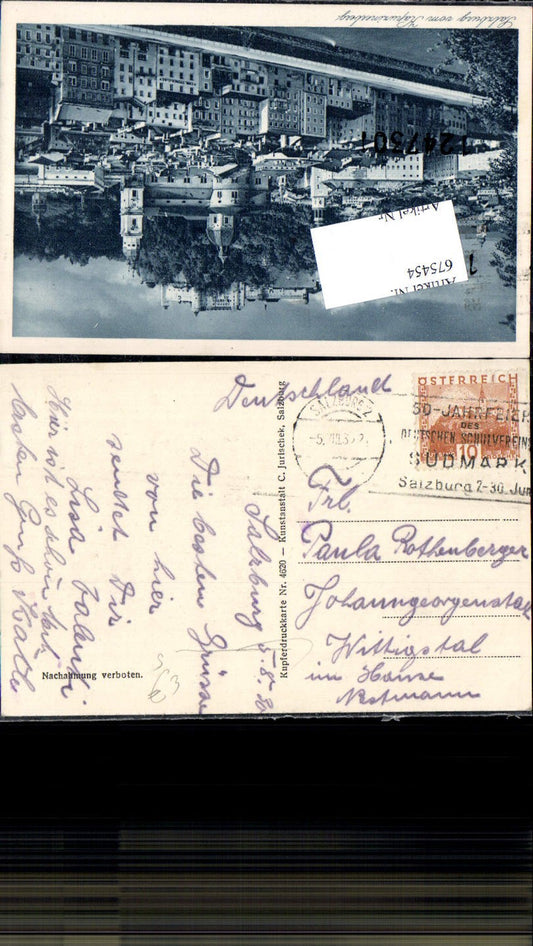 Salzburg vom Kapuzinerberg
1247501
Artikel Nr.
Artikel Nr.
675454
Deutschland
SALZBURG 2
ÖSTERREICH
50-JAHRFEIER
DES
DEUTSCHEN SCHULVEREINS
SÜDMARK
10
Salzburg 2-30. Jun
Frl.
Paula Rothenberger
Johanngeorgenstadt
Wittigstal
im Hause
Nestmann
Kupferdruckkarte Nr. 4620 – Kunstanstalt C. Jurischek, Salzburg
Salzburg 5.8.30
Die besten Grüsse
von hier
sendet Dir
Lisa
Hier ist es schön
besten Gruß Käthe
Nachahmung verboten.